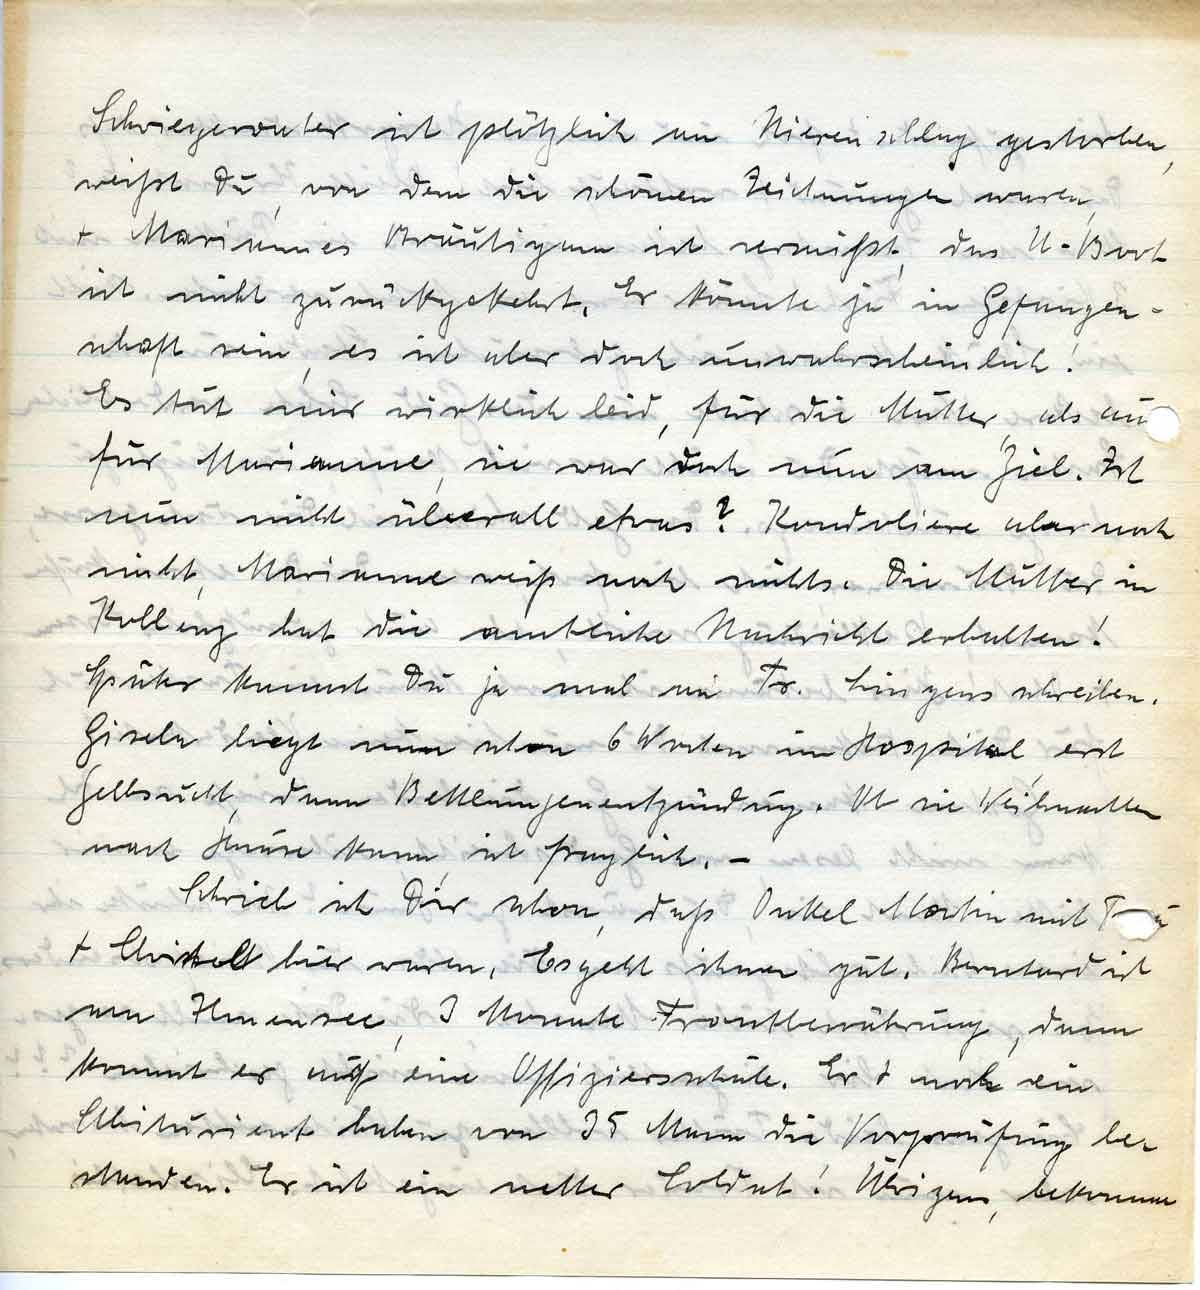 Schwiegervater ist plötzlich an Nierenschlag gestorben,
weißt Du, von dem die schönen Zeichnungen waren,
+ Mariannes Bräutigam ist vermißt, das U-Boot
ist nicht zurückgekehrt. Er könnte ja in Gefangen-
schaft sein, es ist aber doch unwahrscheinlich!
Es tut mir wirklich leid, für die Mutter, als au
für Marianne, sie war doch nun am Ziel. Ist
nun nicht überall etwas? Kondoliere aber noch
nicht, Marianne weiß noch nichts. Die Mutter in
hat die amtliche Nachricht erhalten!
Später kannst Du ja mal an Fr. Lingens schreiben.
Gisela liegt nun schon 6 Wochen im Hospital, erst
Gelbsucht, dann . Ob sie Weihnachten
nach Hause kann, ist fraglich. –
Schrieb ich Dir schon, daß Onkel Martin mit
+ hier waren. Es geht ihnen gut. Bernhard ist
am Ilmensee, 3 Monate Frontbewährung, dann
kommt er auf eine Offiziersschule. Er + noch ein
Abiturient haben von 35 Mann die Vorprüfung be-
standen. Er ist ein netter Soldat! Übrigens, bekomme